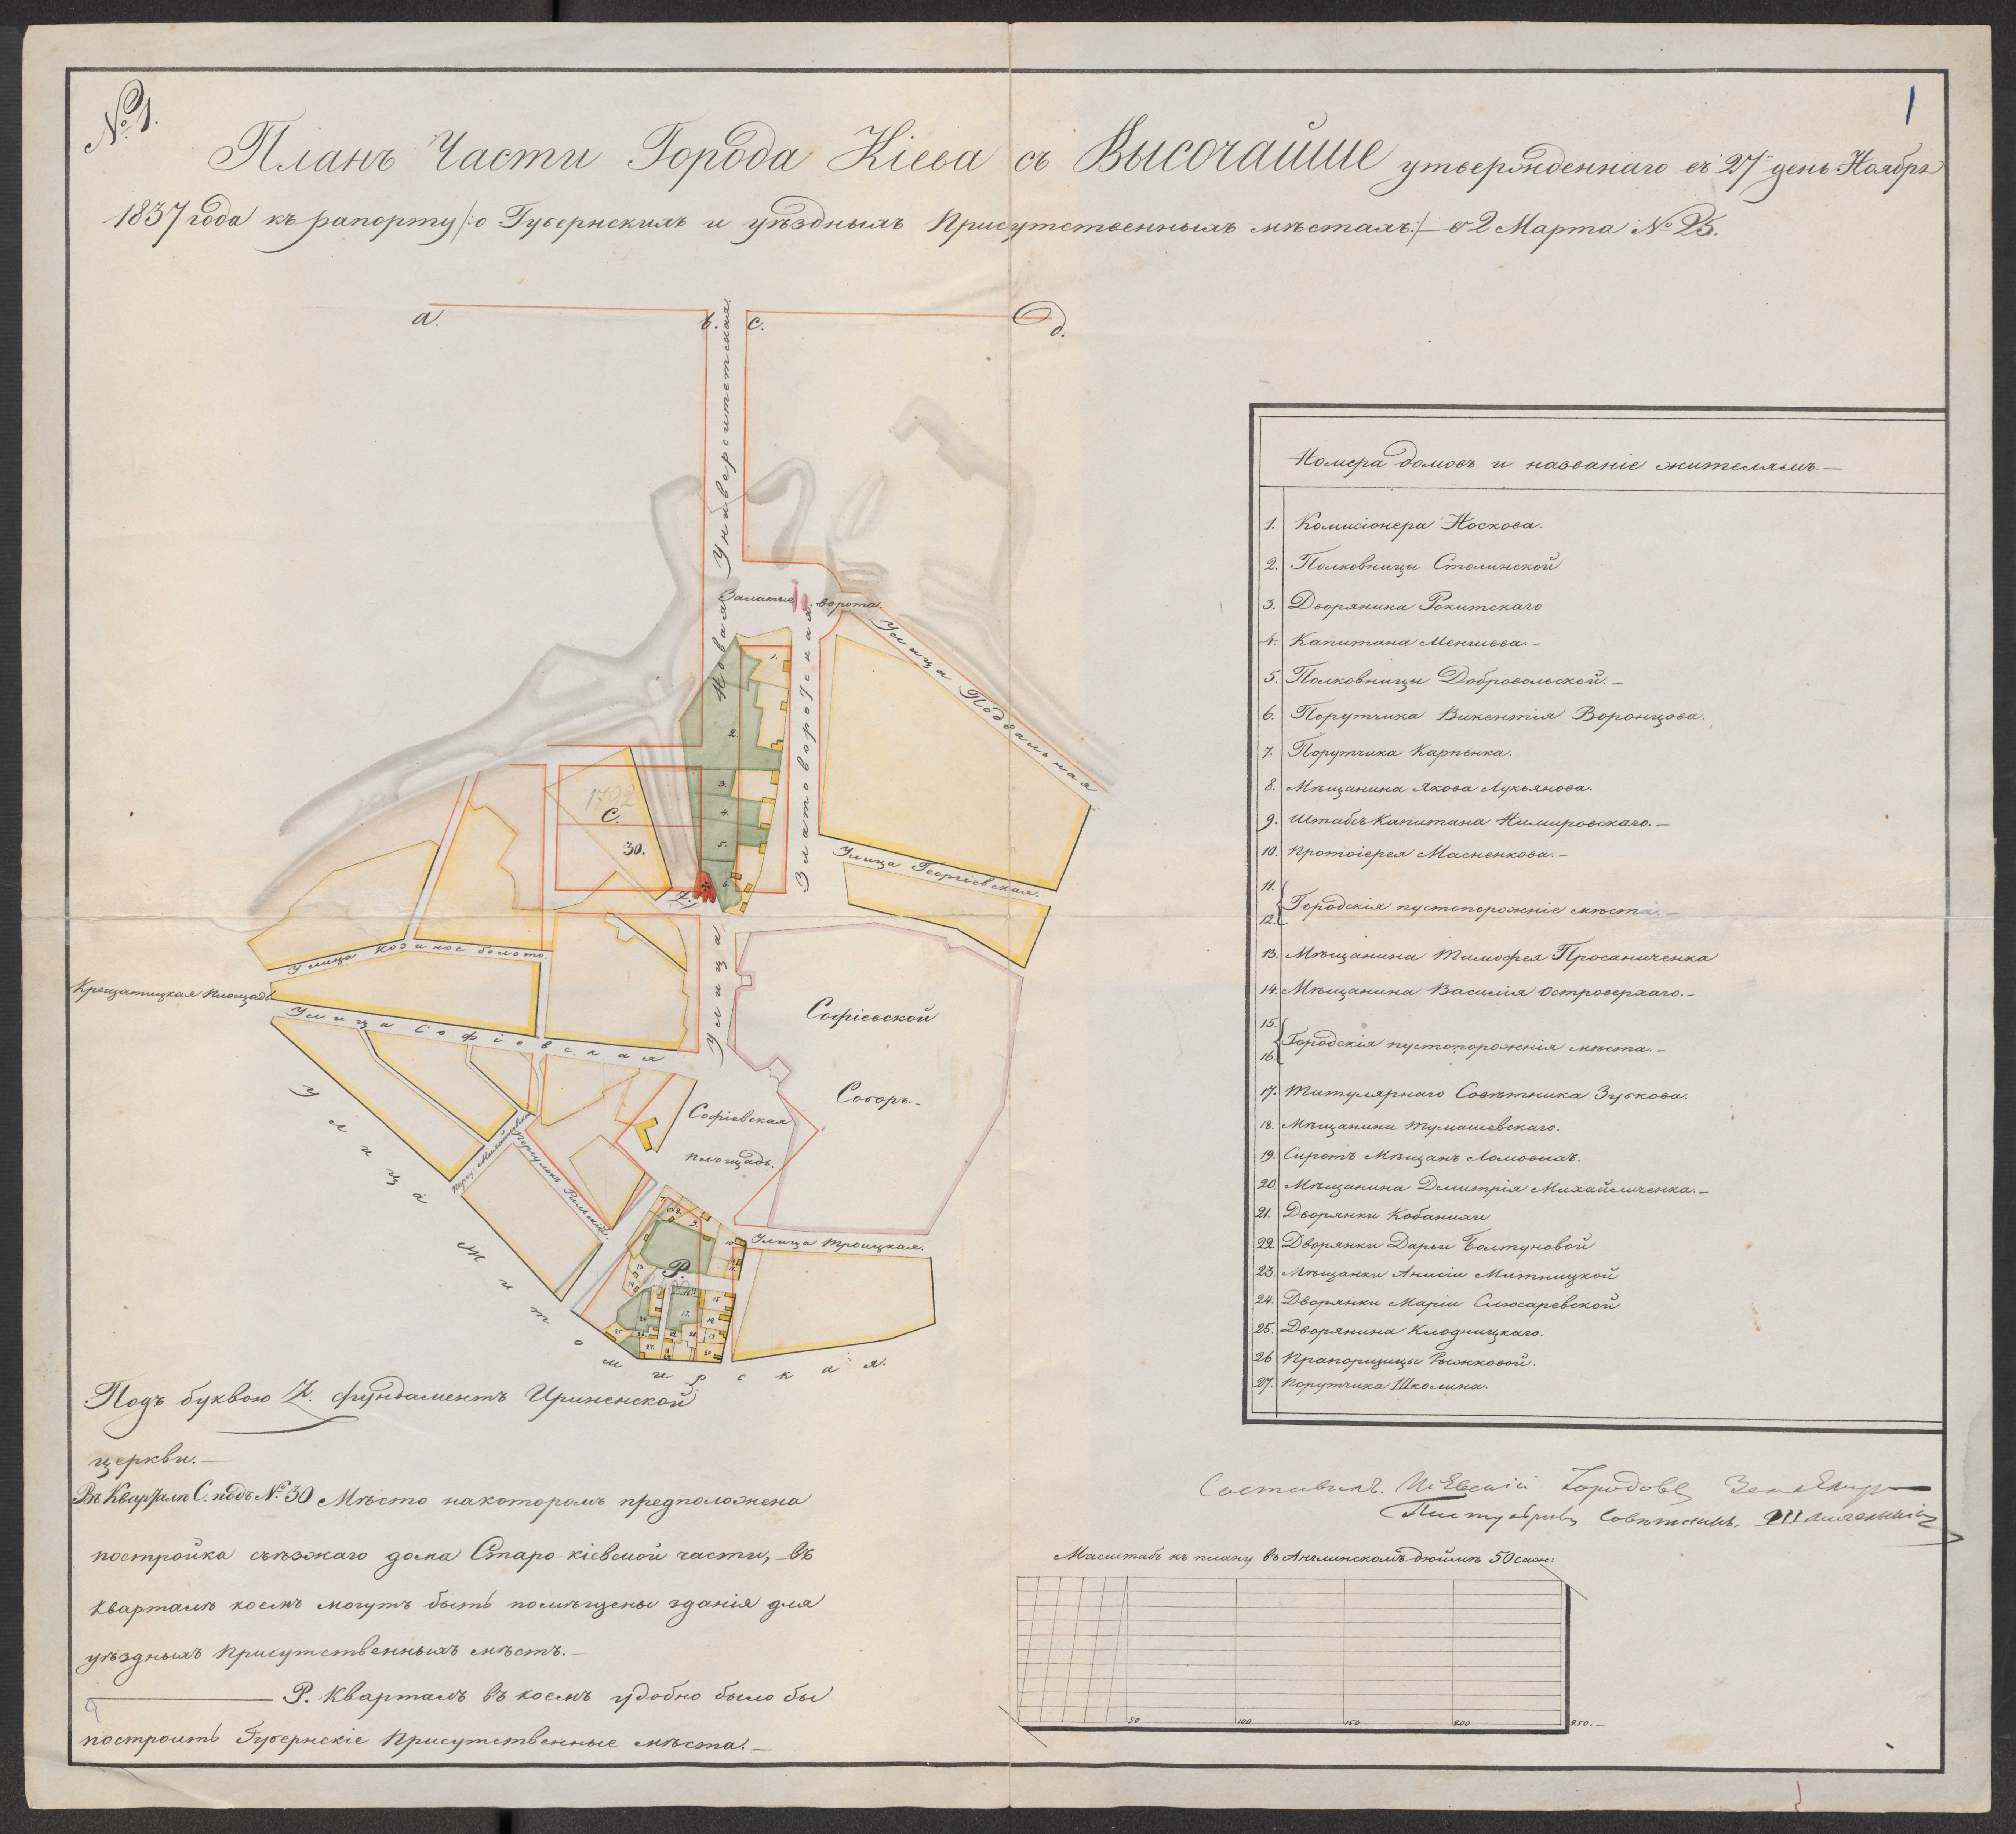 № 1.
1
Планъ Части Города Кіева съ Высочайше утвержденнаго въ 27й день Ноября
1837 года къ рапорту /:о Губернскихъ и уѣздныхъ Присутственныхъ мѣстахъ:/ – 2 Марта № 25.
а.
b.
с.
d.
Новая Университетская
Улица
Залатые ворота.
Златоворотская
Улица Подвальная
1.
2.
3.
4.
5.
6.
1792
С.
30.
Z.
Улица Георгіевская.
Улица Козиное болото.
Крещатицкая Площадь
Улица Софіевская
Софіевской
Соборъ.
Софіевская
площадь.
Переу. Михайловскій
Переулокъ Рыльскій.
Улица Троицкая.
Р.
Улица Житомирская.
Номера домовъ и названіе жителямъ.–
1. Комисіонера Носкова.
2. Полковницы Столинской
3. Дворянина Рокитскаго
4. Капитана Менчиева.–
5. Полковницы Добровольской.–
6. Порутчика Викентія Воронцова.
7. Порутчика Карпенка.
8. Мѣщанина Якова Лукьянова.
9. Штабсъ Капитана Нимировскаго.–
10. Протоіерея Масненкова.–
11.
12. Городскія пустопорожніе мѣста.–
13. Мѣщанина Тимофея Просаниченка
14. Мѣщанина Василія Островерхаго.–
15.
16. Городскія пустопорожнія мѣста.–
17. Титулярнаго Совѣтника Зубкова.
18. Мѣщанина Тумашевскаго.
19. Сиротъ Мѣщанъ Ломовыхъ.
20. Мѣщанина Дмитрія Михайличенка.–
21. Дворянки Кобанихи
22. Дворянки Дарьи Болтуновой
23. Мѣщанки Анисіи Митницкой
24. Дворянки Маріи Слюсаревской
25. Дворянина Клодницкаго.
26 Прапорщицы Рыжковой.
27. Порутчика Школина.
Подъ буквою Z. фундаментъ Ирининской
церкви.–
Въ Кварталѣ С. подъ № 30 Мѣсто на которомъ предположена
постройка съѣзжаго дома Старо-кіевской части, – въ
Кварталѣ коемъ могутъ быть помѣщены зданія для
уѣздныхъ Присутственныхъ мѣстъ.–
Р. Кварталъ въ коемъ удобно было бы
построить Губернскіе Присутственные мѣста.–
Составилъ Кіевскій Городовой Землемѣръ
Титулярный Совѣтникъ
Масштабъ къ плану въ Англинскомъ дюймѣ 50 саж:
50
100
150
200
250.–